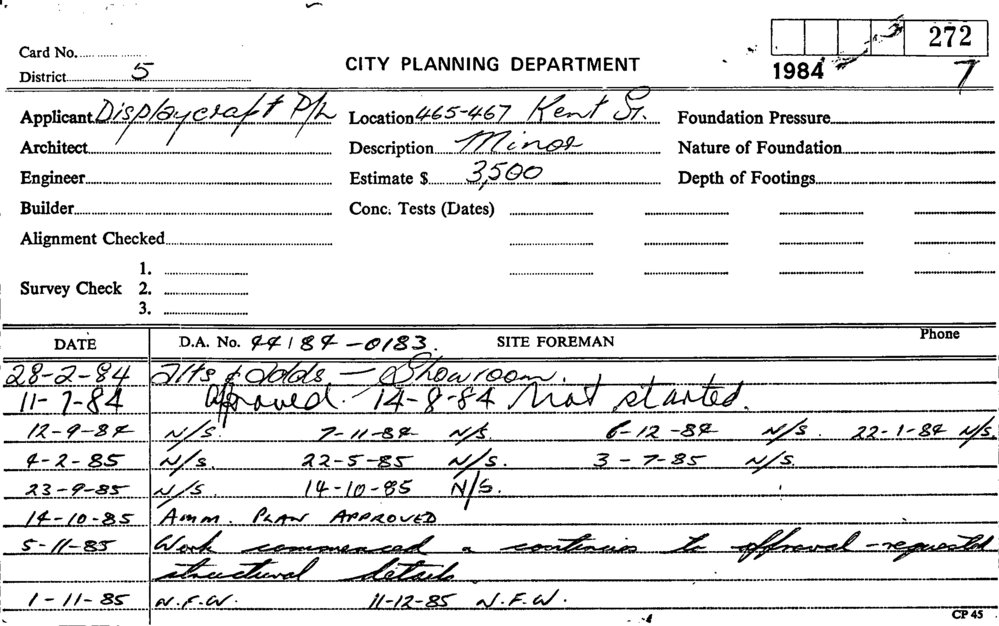 272
Card No.
District 5
CITY PLANNING DEPARTMENT
1984
7
Applicant Displaycraft P/L Location 465-467 Kent St. Foundation Pressure
Architect Description Minor Nature of Foundation
Engineer Estimate $ 3,500 Depth of Footings
Builder Conc. Tests (Dates)
Alignment Checked
1.
Survey Check 2.
3.
DATE D.A. No. 44/84-0183. SITE FOREMAN Phone
28-2-84 Alts & Adds - Showroom.
11-7-84 Approved. 14-8-84 Not started.
12-9-84 N/S. 7-11-84 N/S. 6-12-84 N/S. 22-1-84 N/S.
4-2-85 N/S. 22-5-85 N/S. 3-7-85 N/S.
23-9-85 N/S. 14-10-85 N/S.
14-10-85 AMM. PLAN APPROVED
5-11-85 Work commenced & continues to approval - requested
structural details.
1-11-85 N.F.W. 11-12-85 N.F.W.
CP 45